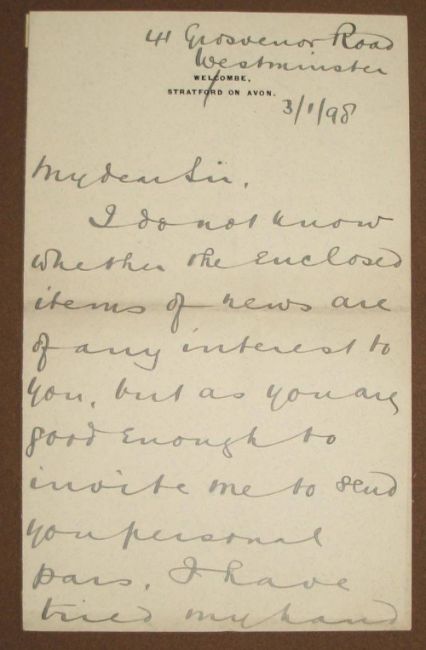 41 Grosvenor Road
Westminster
WELCOMBE,
STRATFORD ON AVON.
3/1/98
My dear Sir,
I do not know
whether the enclosed
items of news are
of any interest to
you, but as you are
good enough to
invite me to send
you personal
pars, I have
tried my hand